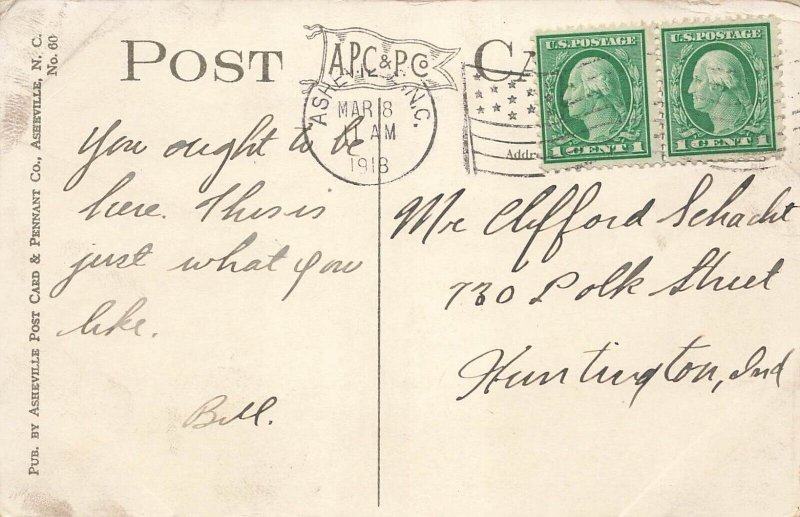 POST CA
A.P.C. & P. Co
ASHEVILLE, N.C.
MAR 8
11 AM
1918
U.S. POSTAGE
1 CENT 1
U.S. POSTAGE
1 CENT 1
Addre
You ought to be
here. This is
just what you
like.
Bill.
Mr Clifford Schacht
730 Polk Street
Huntington, Ind
PUB. BY ASHEVILLE POST CARD & PENNANT CO., ASHEVILLE, N. C.
No. 60